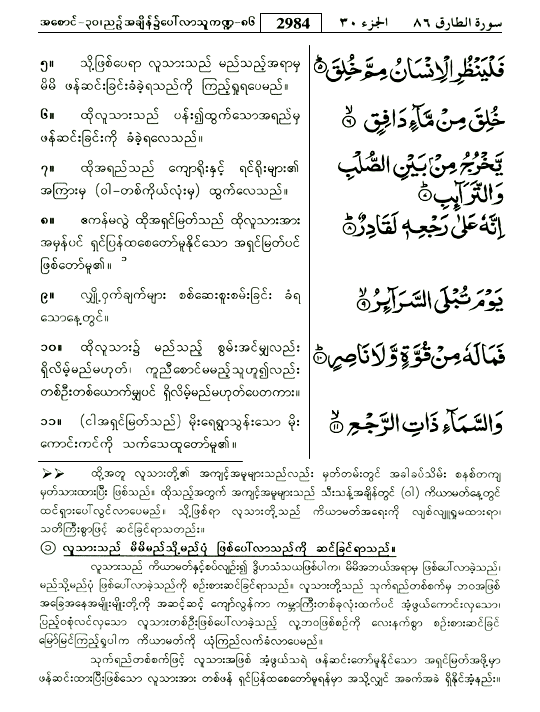 အစောင်-၃၀၊ညဉ့်အချိန်၌ပေါ်လာသူကဏ္ဍ-၈၆ 2984 الجزء ٣٠ سورة الطارق ٨٦
၅။ သို့ဖြစ်ပေရာ လူသားသည် မည်သည့်အရာမှ
မိမိ ဖန်ဆင်းခြင်းခံခဲ့ရသည်ကို ကြည့်ရှုရပေမည်။
فَلْيَنْظُرِ الْاِنْسَانُ مِمَّ خُلِقَ ۝٥
၆။ ထိုလူသားသည် ပန်း၍ထွက်သောအရည်မှ
ဖန်ဆင်းခြင်းကို ခံခဲ့ရလေသည်။
خُلِقَ مِنْ مَّآءٍ دَافِقٍ ۝٦
၇။ ထိုအရည်သည် ကျောရိုးနှင့် ရင်ရိုးများ၏
အကြားမှ (ဝါ-တစ်ကိုယ်လုံးမှ) ထွက်လေသည်။
يَّخْرُجُ مِنْۢ بَيْنِ الصُّلْبِ
وَالتَّرَآئِبِ ۝٧
၈။ ဧကန်မလွဲ ထိုအရှင်မြတ်သည် ထိုလူသားအား
အမှန်ပင် ရှင်ပြန်ထစေတော်မူနိုင်သော အရှင်မြတ်ပင်
ဖြစ်တော်မူ၏။
اِنَّهٗ عَلٰى رَجْعِهٖ لَقَادِرٌ ۝٨
၉။ လျှို့ဝှက်ချက်များ စစ်ဆေးစူးစမ်းခြင်း ခံရ
သောနေ့တွင်။
يَوْمَ تُبْلَى السَّرَآئِرُ ۝٩
၁၀။ ထိုလူသား၌ မည်သည့် စွမ်းအင်မျှလည်း
ရှိလိမ့်မည်မဟုတ်၊ ကူညီစောင်မမည့်သူဟူ၍လည်း
တစ်ဦးတစ်ယောက်မျှပင် ရှိလိမ့်မည်မဟုတ်ပေတကား။
فَمَا لَهٗ مِنْ قُوَّةٍ وَّلَا نَاصِرٍ ۝١٠
၁၁။ (ငါအရှင်မြတ်သည်) မိုးရေရွာသွန်းသော မိုး
ကောင်းကင်ကို သက်သေထူတော်မူ၏။
وَالسَّمَآءِ ذَاتِ الرَّجْعِ ۝١١
➢➢ ထို့အတူ လူသားတို့၏ အကျင့်အမူများသည်လည်း မှတ်တမ်းတွင် အခါခပ်သိမ်း စနစ်တကျ
မှတ်သားထားပြီး ဖြစ်သည်။ ထိုသည့်အတွက် အကျင့်အမူများသည် သီးသန့်အချိန်တွင် (ဝါ) ကိယာမတ်နေ့တွင်
ထင်ရှားပေါ်လွင်လာပေမည်။ သို့ဖြစ်ရာ လူသားတို့သည် ကိယာမတ်အရေးကို လျစ်လျူရှုမထားရာ၊
သတိကြီးစွာဖြင့် ဆင်ခြင်ရာသတည်း။
① လူသားသည် မိမိမည်သို့မည်ပုံ ဖြစ်ပေါ်လာသည်ကို ဆင်ခြင်ရာသည်။
လူသားသည် ကိယာမတ်နှင့်စပ်လျဉ်း၍ ဒွိဟသံသယဖြစ်ပါက၊ မိမိအဘယ်အရာမှ ဖြစ်ပေါ်လာခဲ့သည်၊
မည်သို့မည်ပုံ ဖြစ်ပေါ်လာခဲ့သည်ကို စဉ်းစားဆင်ခြင်ရာသည်။ လူသားတို့သည် သုက်ရည်တစ်စက်မှ ဘဝအဖြစ်
အခြေအနေအမျိုးမျိုးတို့ကို အဆင့်ဆင့် ကျော်လွန်ကာ ကမ္ဘာကြီးတစ်ခုလုံးထက်ပင် အံ့ဖွယ်ကောင်းလှသော၊
ပြည့်ဝစုံလင်လှသော လူသားတစ်ဦးဖြစ်ပေါ်လာခဲ့သည့် လူ့ဘဝဖြစ်စဉ်ကို လေးနက်စွာ စဉ်းစားဆင်ခြင်
မြော်မြင်ကြည့်ရှုပါက ကိယာမတ်ကို ယုံကြည်လက်ခံလာပေမည်။
သုက်ရည်တစ်စက်ဖြင့် လူသားအဖြစ် အံ့ဖွယ်သရဲ ဖန်ဆင်းတော်မူနိုင်သော အရှင်မြတ်အဖို့မှာ
ဖန်ဆင်းထားပြီးဖြစ်သော လူသားအား တစ်ဖန် ရှင်ပြန်ထစေတော်မူရန်မှာ အသို့လျှင် အခက်အခဲ ရှိနိုင်အံ့နည်း။